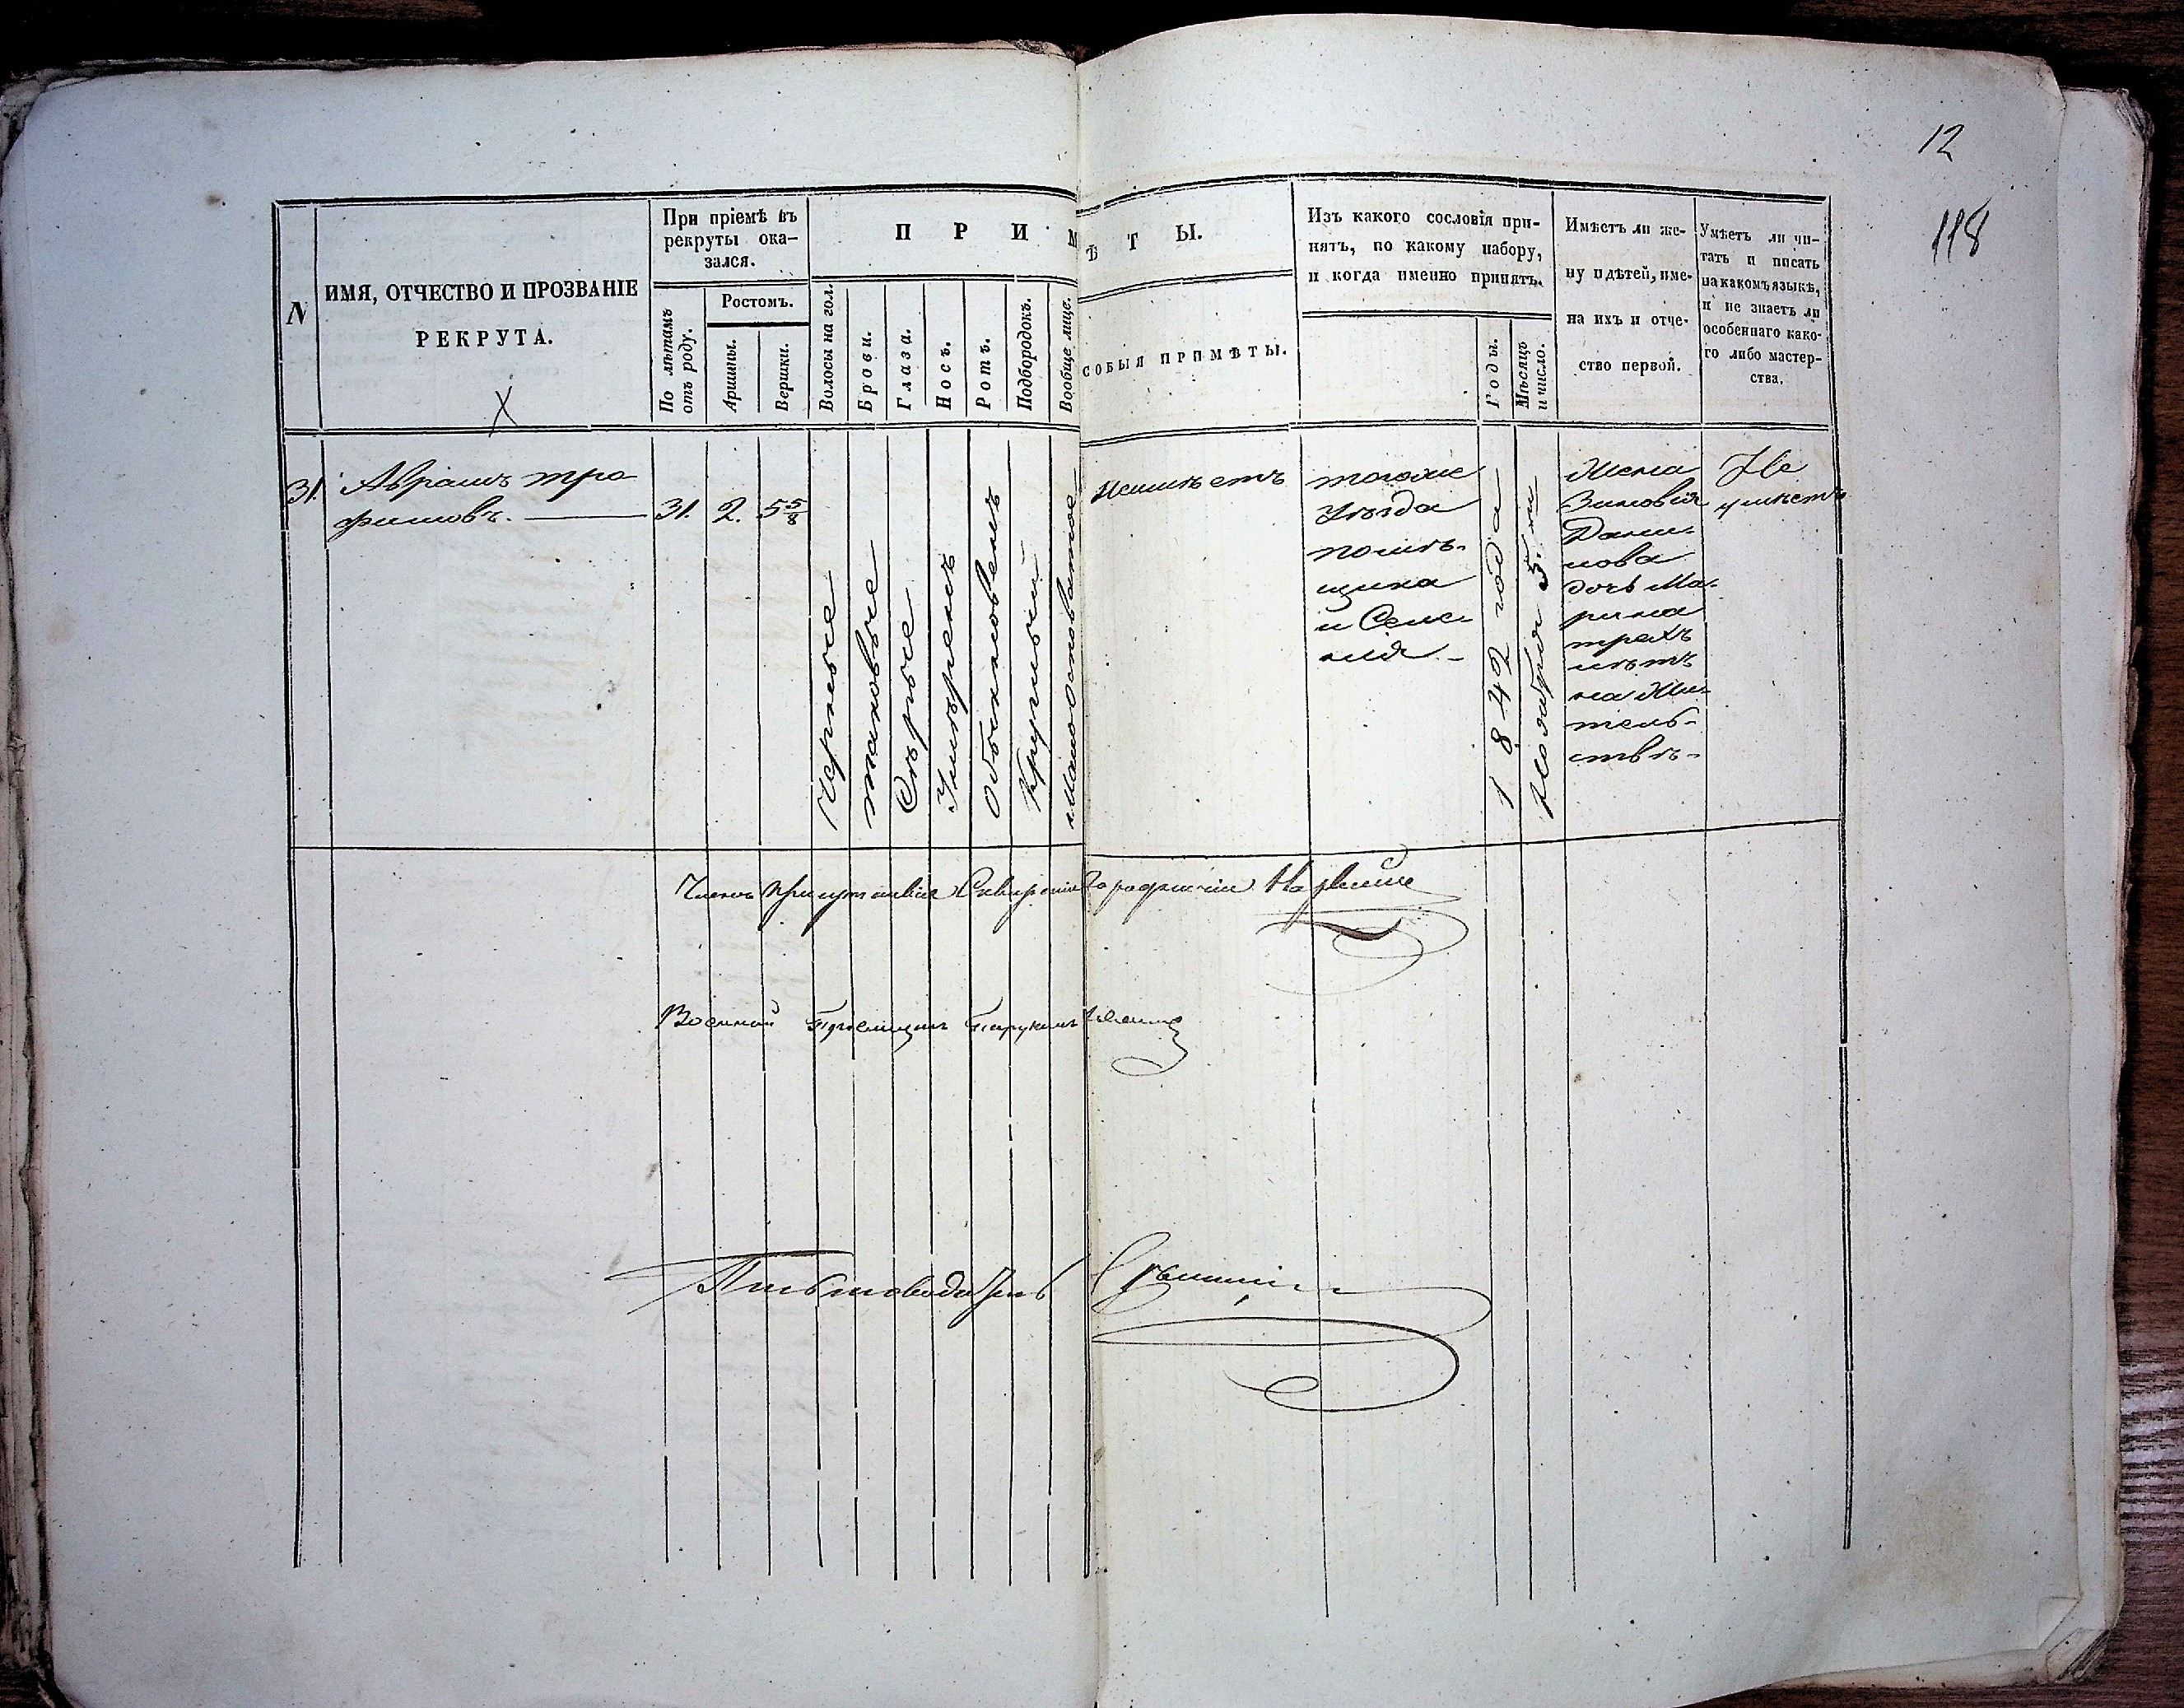 12
118
N
ИМЯ, ОТЧЕСТВО И ПРОЗВАНІЕ
РЕКРУТА.
X
При пріемѣ въ
рекруты ока-
зался.
По лѣтамъ
отъ роду.
Ростомъ.
Аршины.
Вершки.
П Р И М Ѣ Т Ы.
Волосы на гол.
Брови.
Глаза.
Носъ.
Ротъ.
Подбородокъ.
Вообще лице.
СОБЫЯ ПРИМѢТЫ.
Изъ какого сословія при-
нятъ, по какому набору,
и когда именно принятъ.
Годы.
Мѣсяцъ
и число.
Имѣетъ ли же-
ну и дѣтей, име-
на ихъ и отче-
ство первой.
Умѣетъ ли чи-
тать и писать
на какомъ языкѣ,
и не знаетъ ли
особеннаго како-
го либо мастер-
ства.
31.
Аврамъ тро
фимовъ.
31.
2.
5 5/8
Черные
таковые
Сѣрые
Умѣренъ
Обыкновенъ
Круглый
Малоосповатое
Неимѣетъ
тогоже
Уѣзда
помѣ-
щика
1842 года
Ноября 5.
Жена
Зиновія
Дани-
лова
дочь Ма-
рина
трехъ
лѣтъ
на Жи-
тель-
ствѣ-
Не
умѣетъ
Членъ
Военный Пріемщикъ